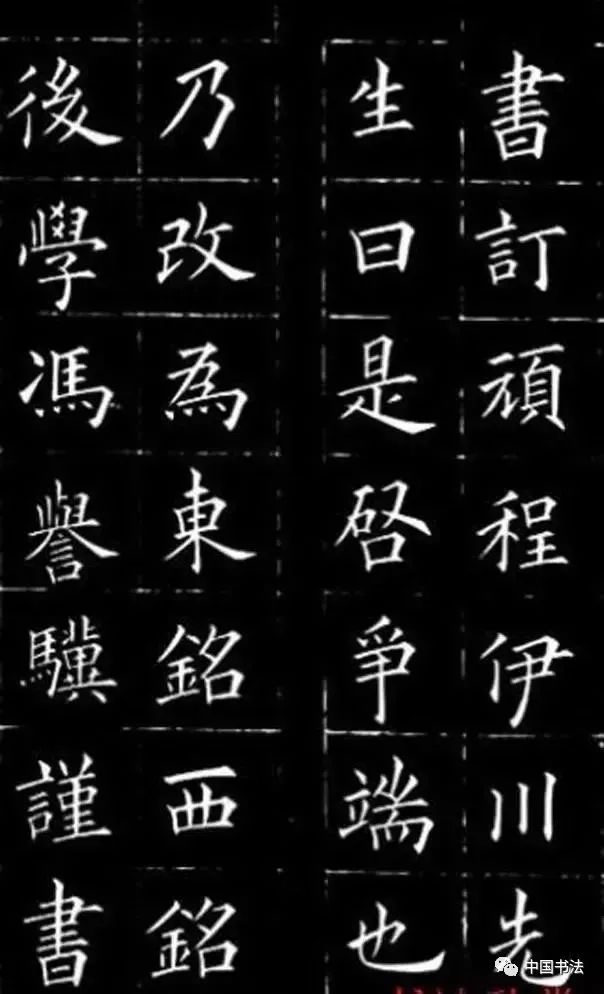 書訂頑程伊川先
生曰是啓爭端也
乃改為東銘西銘
後學馮譽驥謹書
中国书法